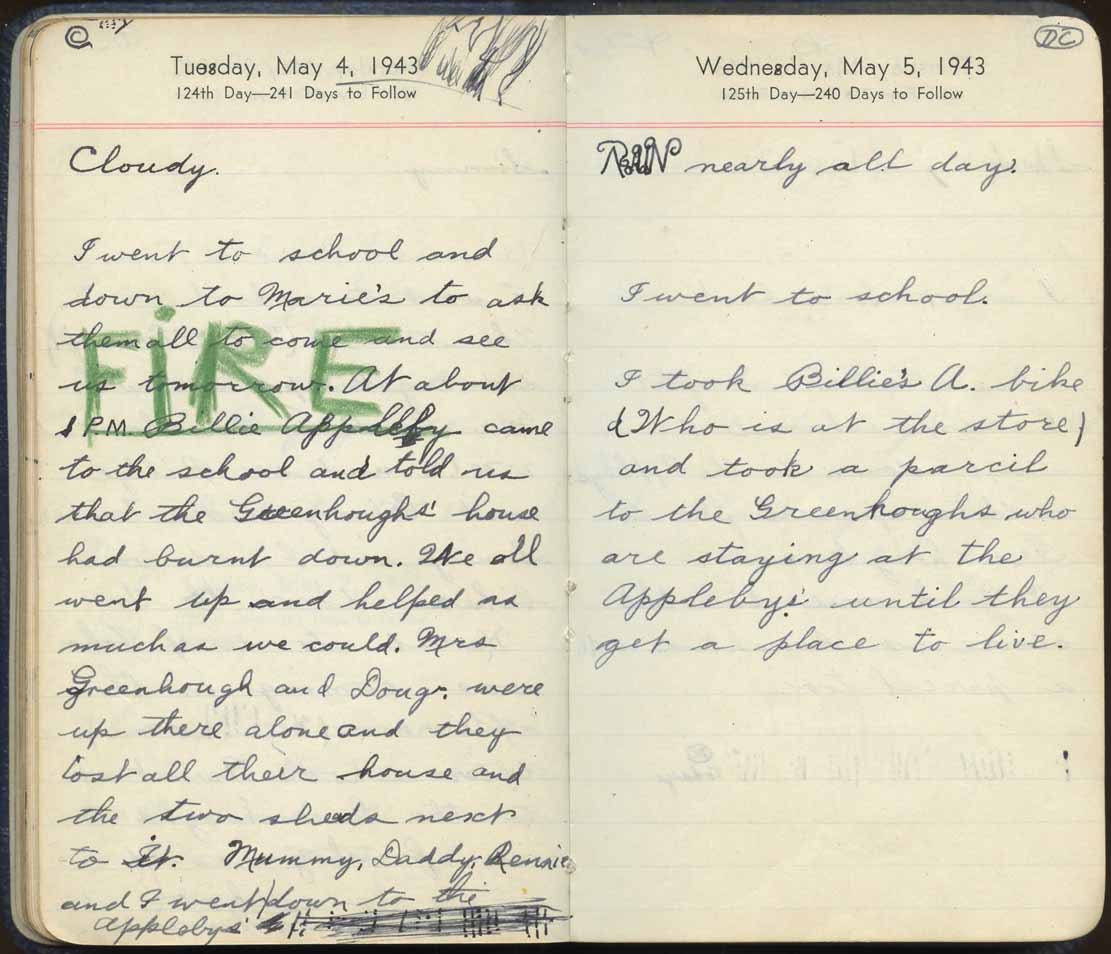 ©
Tuesday, May 4, 1943
124th Day—241 Days to Follow
Cloudy.
I went to school and
down to Marie's to ask
them all to come and see
us tomorrow. At about
FiRE
1 P.M. Billie Appleby came
to the school and told us
that the Greenhoughs' house
had burnt down. We all
went up and helped as
much as we could. Mrs
Greenhough and Doug. were
up there alone and they
lost all their house and
the two sheds next
to it. Mummy, Daddy, Rennie
and I went down to the
Applebys'
DC
Wednesday, May 5, 1943
125th Day—240 Days to Follow
RAIN nearly all day.
I went to school.
I took Billie's A. bike
(Who is at the store)
and took a parcil
to the Greenhoughs who
are staying at the
Applebys' until they
get a place to live.